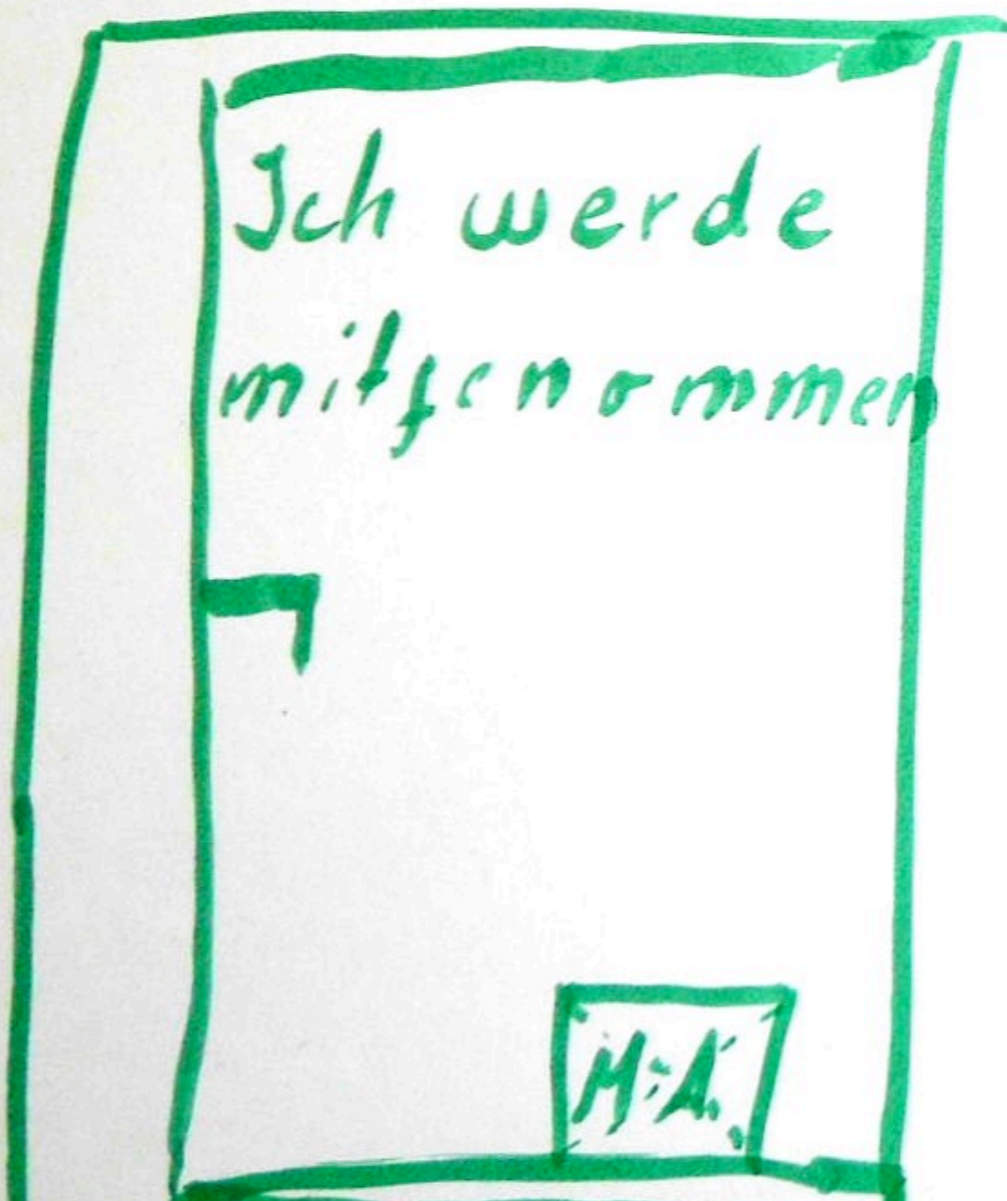 Ich werde
mitgenommen
M.A.